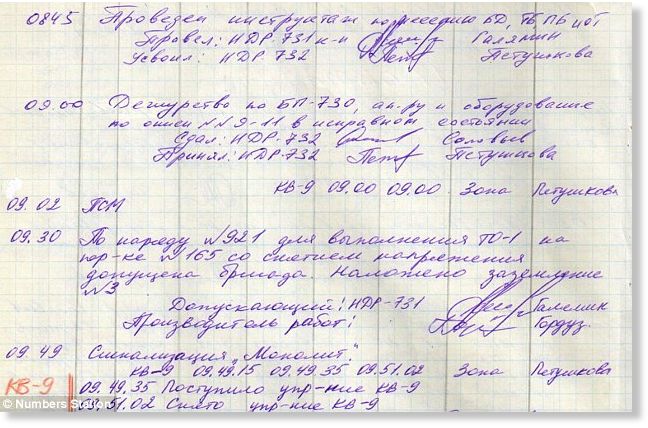 0845 Проведен инструктаж по несению БД, ТБ ПБ
Провел: НДР 731 к-н Галямин
Усвоил: НДР 732 Петушкова
09.00 Дежурство по БП-730, ап.ру и оборудование
по описи №№ 9-11 в исправном состоянии
Сдал: НДР-732 Соловьев
Принял: НДР-732 Петушкова
КВ-9 09.00 09.00 Зона Петушкова
09.02 ПСМ
09.30 По наряду №921 для выполнения ТО-1 на
№165 со снятием напряжения
допущена бригада. Наложено заземление
№3
Допускающий: НДР-731 Галямин
Производитель работ:
09 49 Сигнализация „Монолит".
КВ-9 09.49.15 09.49.35 09.51.02 Зона Петушкова
КВ-9 09.49.35 Поступило упр-ние КВ-9
09.51.02 Снято упр-ние КВ-9
© Numbers Station